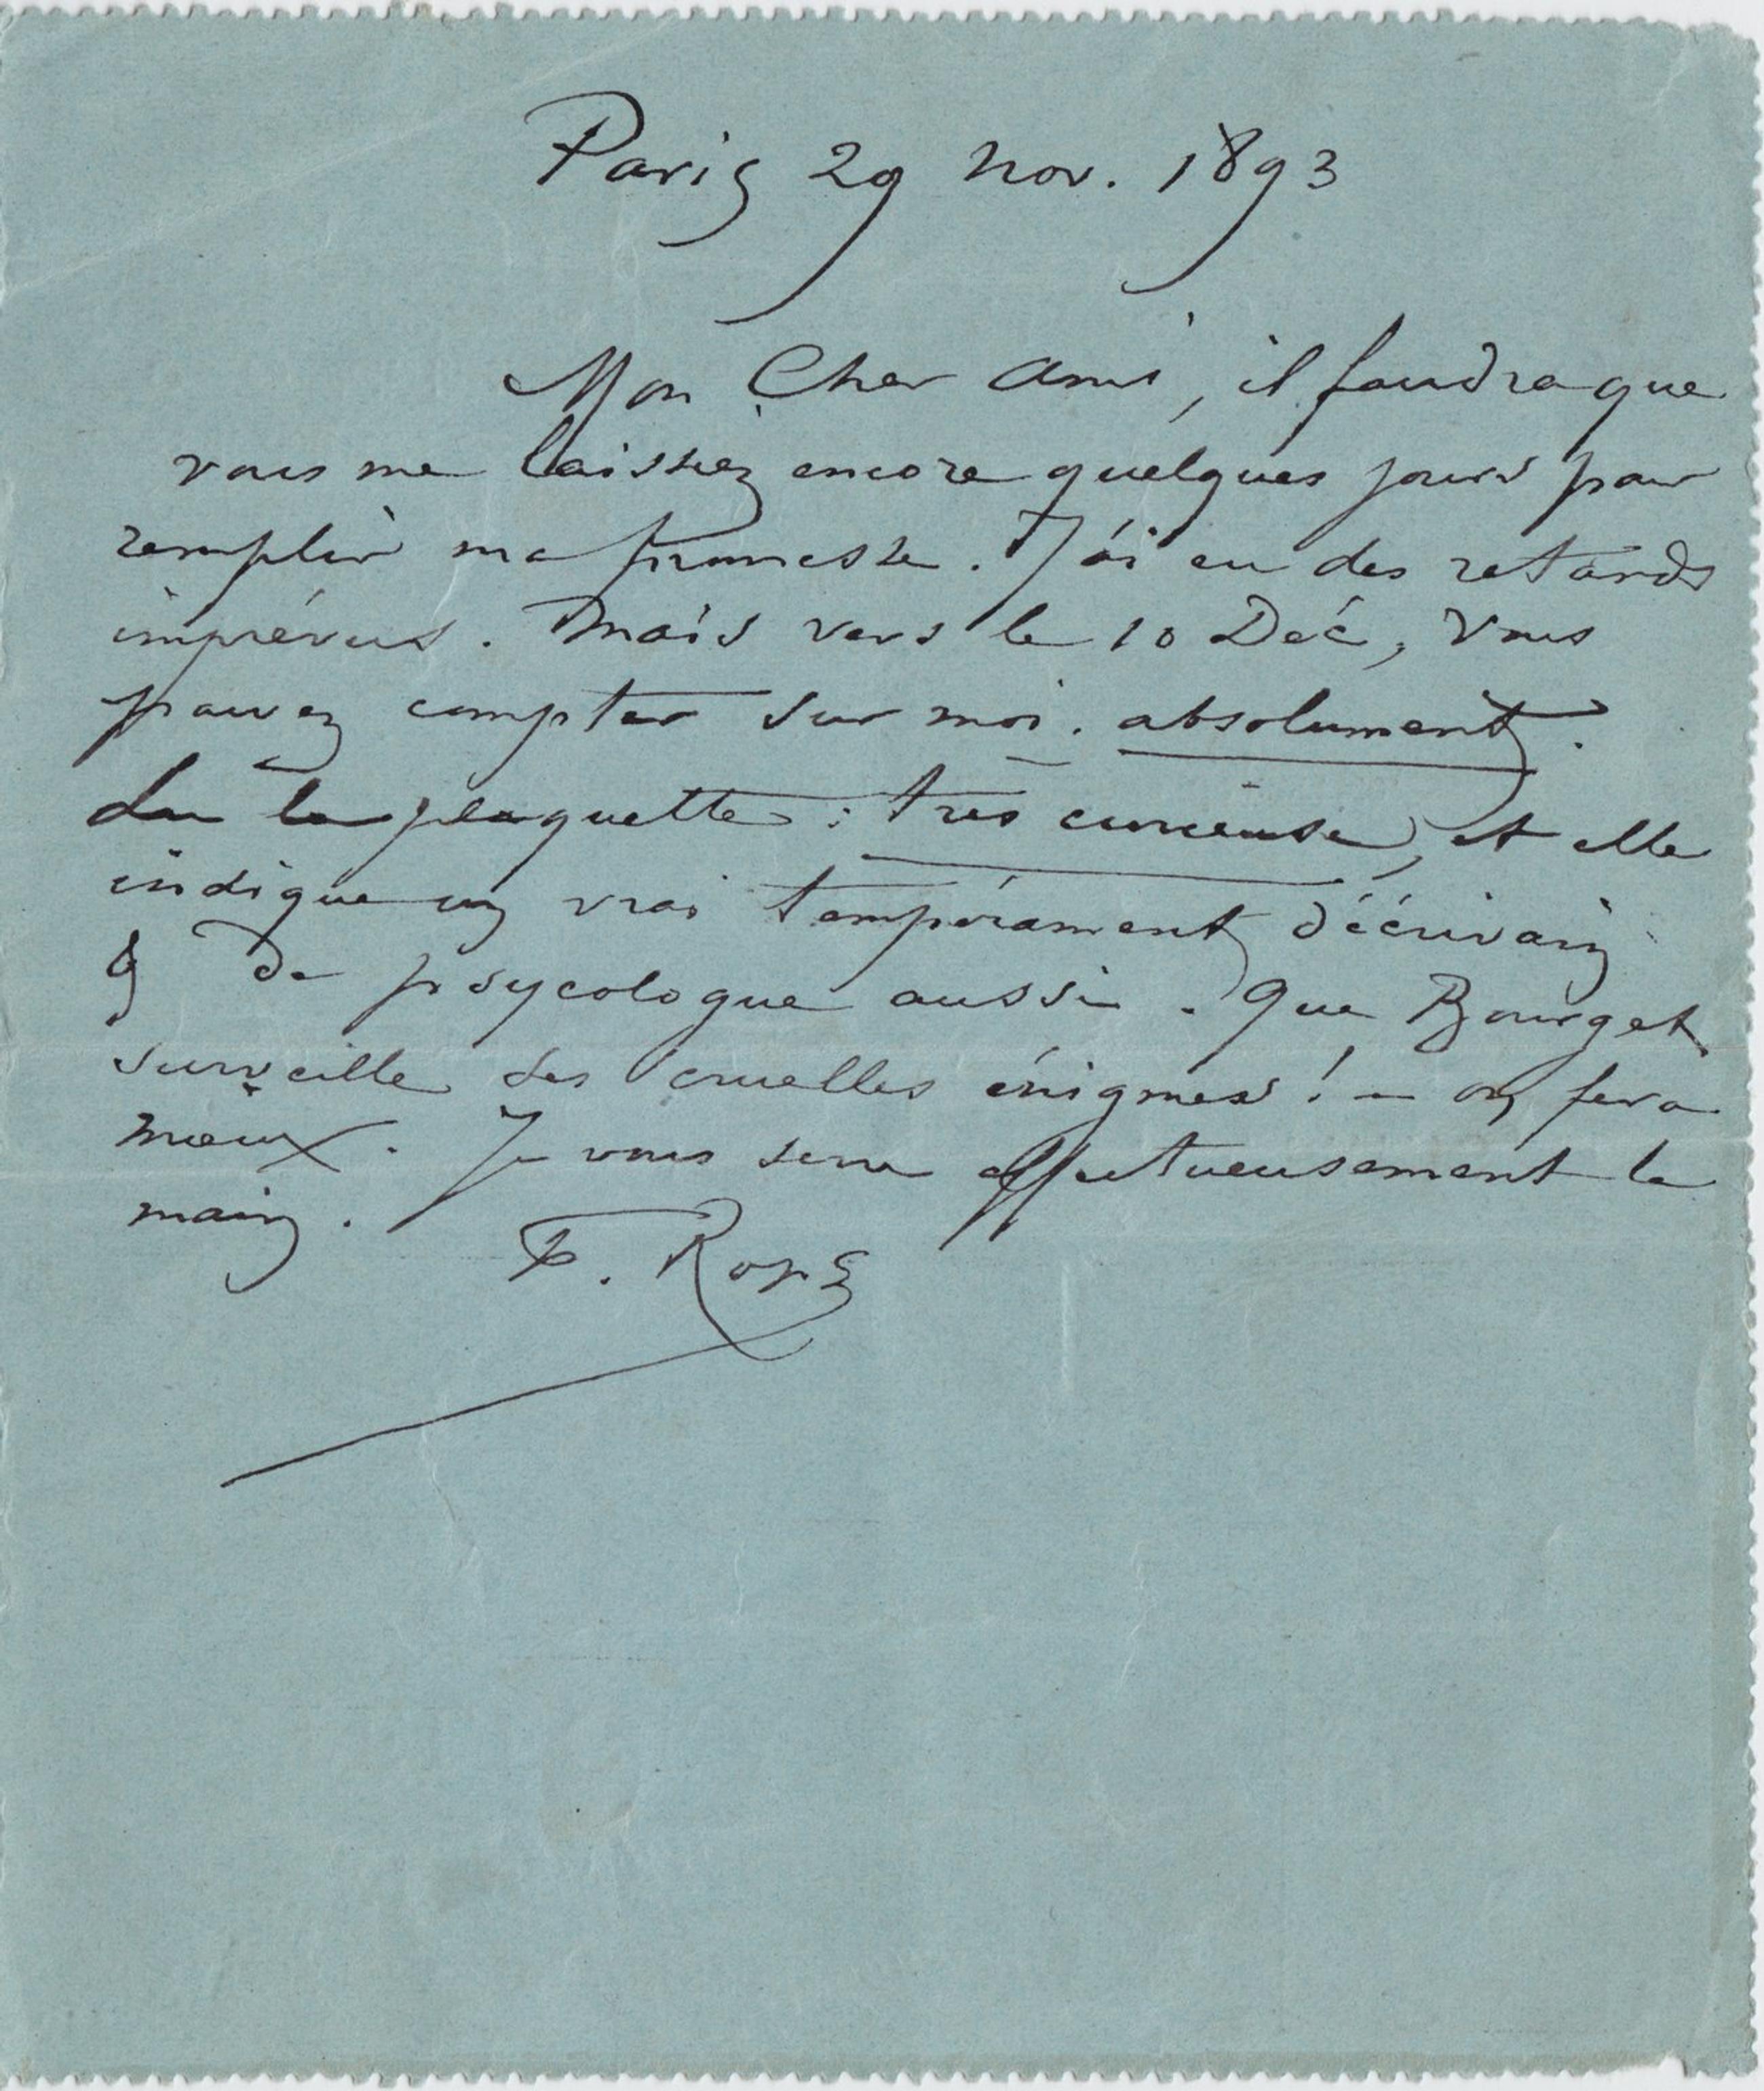 Paris 29 Nov. 1893
Mon Cher Ami, il faudra que
vous me laissiez encore quelques jours pour
remplir ma promesse. J'ai eu des retards
imprévus. Mais vers le 10 Déc, vous
pouvez compter sur moi. absolument.
Lu la plaquette : très curieuse, et elle
indique un vrai tempérament d'écrivain
& de psycologue aussi. Que Bourget
surveille ses cruelles énigmes ! — on fera
mieux. Je vous serre affectueusement la
main.
F. Rops